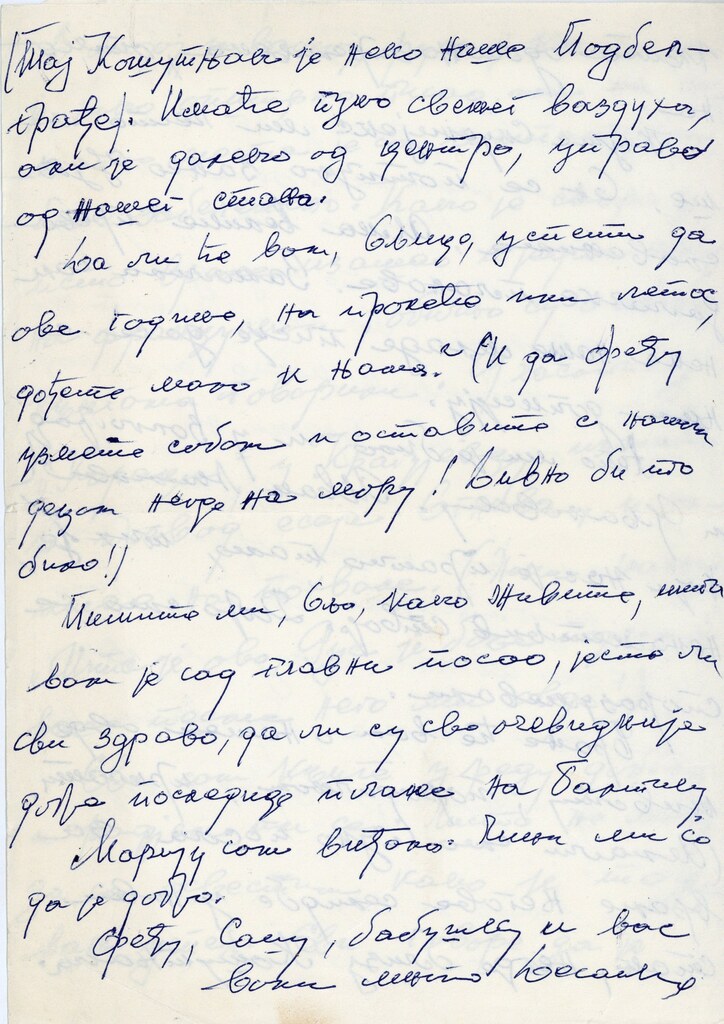 (Тај Кошутњак је неко наше Подбел-
грађе). Имаће пуно свежег ваздуха,
али је далеко од центра, управо
од нашег стана.
Да ли ће вам, Ољице, успети да
ове године, на пролеће или летос,
дођете мало к нама? (И да Феђу
узмете собом и оставите с нашом
децом негде на мору! Дивно би то
било!)
Пишите ми, Ољо, како живите, шта
вам је сад главни посао, јесте ли
сви здраво, да ли су све очевидније
добре последице пл на
Марију сам виђао. Чини ми се
да је добро.
Феђу, Сашу, бабушку и вас
воли много